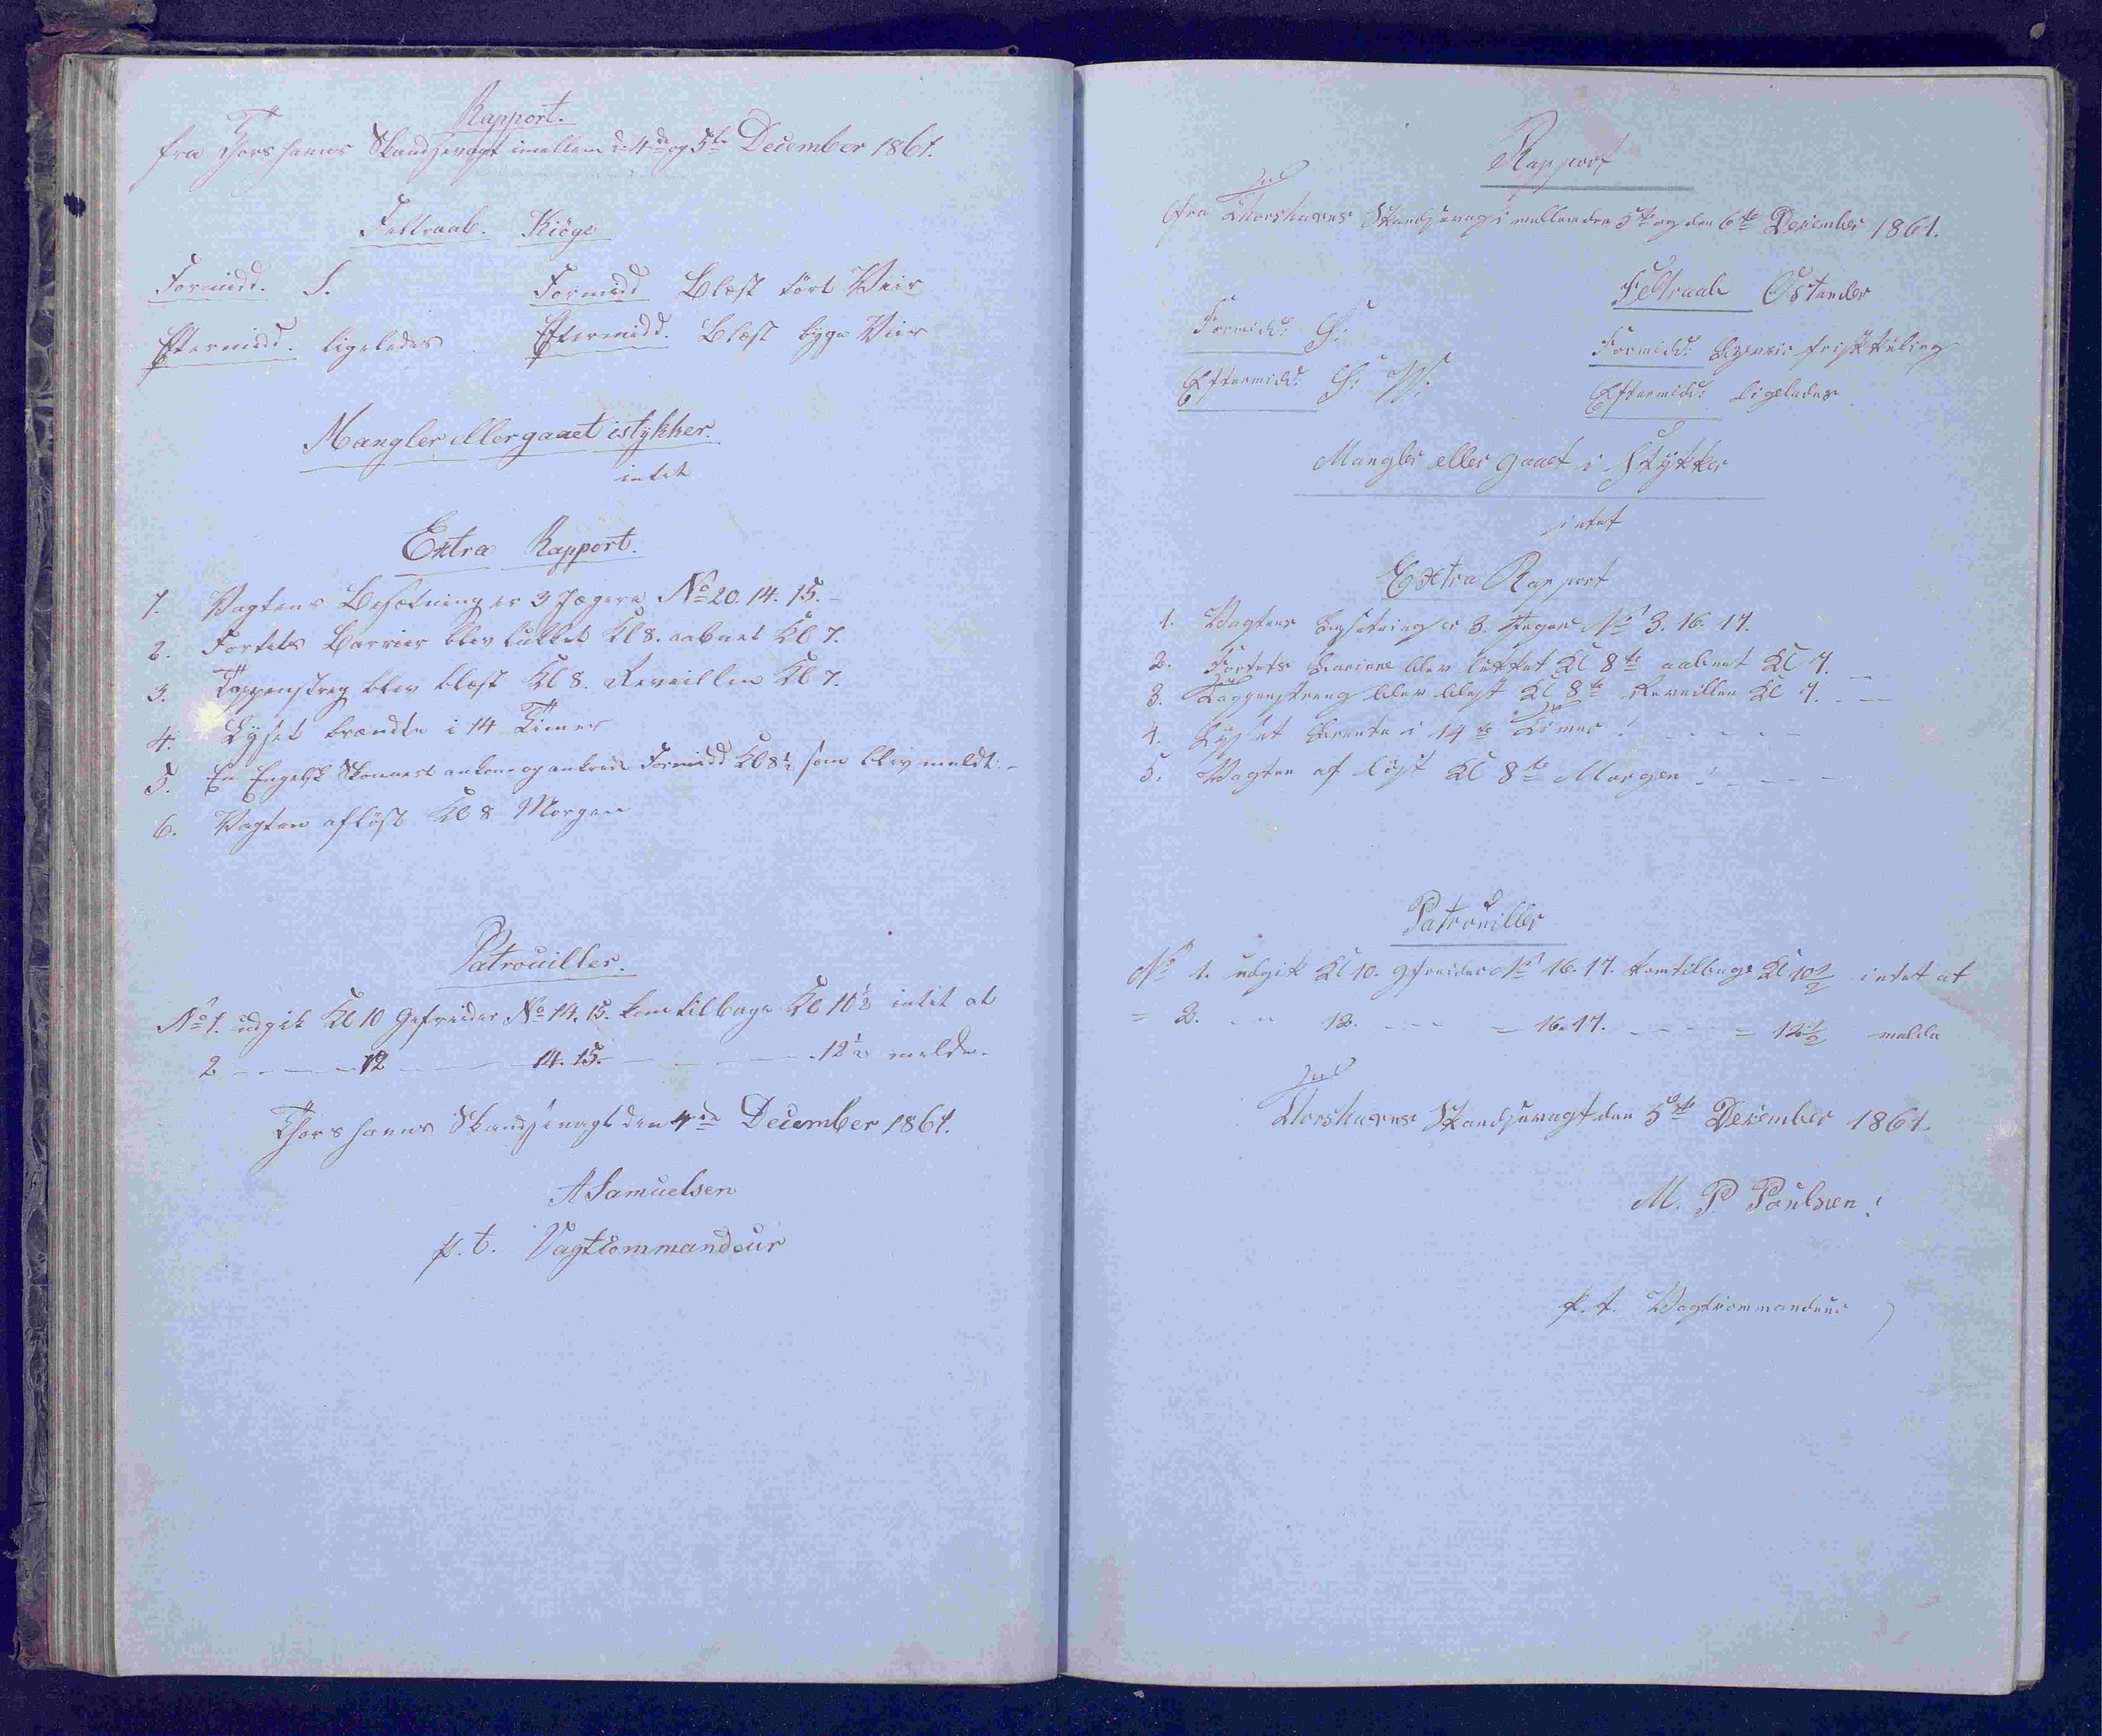 Rapport.
fra Thorshavns Skandsevagt imellem d. 4de og 5te December 1861.
Feltraab. Kiöge
Formidd. S. Formidd Blæst tört Veir
Eftermidd. ligeledes Eftermidd. Blæst byge Veir
Mangler eller gaaet istykker.
intet
Extra Rapport.
1. Vagtens Besætning er 3 Jægere No 20. 14. 15. -
2. Fortets Barrier blev lukket Kl 8. aabnet Kl 7.
3. Tappenstreg blev blæst Kl 8. Reveillen Kl 7.
4. Lyset brændte i 14 Timer
5. En Engelsk Skonnert ankom og ankrede Formidd Kl 8½ som blev meldt. -
6. Vagten aflöst Kl 8 Morgen
Patrouiller.
No 1. udgik Kl 10 Gefreider No 14. 15. kom tilbage Kl 10½ intet at
2 - - - - 12 - - - 14. 15. - - - - - 12½ melde.
Thorshavns Skandsevagt den 4de December 1861.
A Samuelsen
p. t. Vagtcommandeur
Rapport
fra Thorshavns Skandsevagt imellem den 5te og den 6te December 1861.
Feltraab Ostender
Formidd: S: Formidd: frisk Kuling
Eftermidd: S: W: Eftermidd: ligeledes
Mangler eller gaaet i Stykker
intet
Extra Rapport
1. Vagtens Besetning er 3. Jegere No 3. 16. 17.
2. Fortets Bariere blev lukket Kl 8te aabnet Kl 7. -
3. Tappenstreng blev blest Kl 8te Reveillen Kl 7. - -
4. Lyset brente i 14te Timer ! - - - -
5. Vagten af löst Kl 8te Morgen ! - - -
Patrouiller
No 1. udgik Kl 10. gfreider No 16. 17. kom tilbage Kl 10½ intet at
= 2. - - 12. - - - = 16. 17. - - - = 12½ melde
Thorshavns Skandsevagt den 5te December 1861.
M. P Poulsen !
p. t. Vagtcommandeur